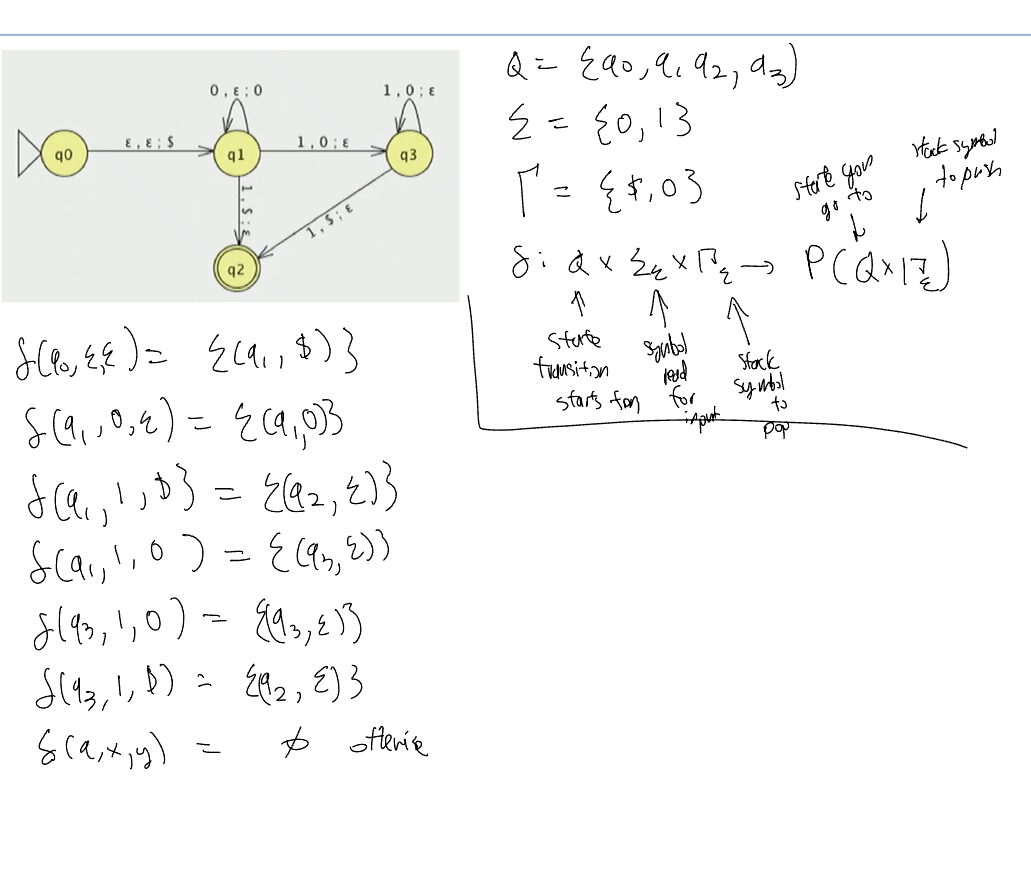 0 , ε ; 0
1 , 0 ; ε
q0
ε , ε ; $
q1
1 , 0 ; ε
q3
1 , $ ; ε
1 , $ ; ε
q2
Q = {q0, q1 q2, q3}
Σ = {0, 1}
Γ = {$, 0}
state you
go to
stack symbol
to push
δ: Q × Σε × Γε → P(Q × Γε)
state
transition
starts from
symbol
read
for
input
stack
symbol
to
pop
δ(q0, ε, ε) = {(q1, $)}
δ(q1, 0, ε) = {(q1, 0)}
δ(q1, 1, $} = {(q2, ε)}
δ(q1, 1, 0) = {(q3, ε)}
δ(q3, 1, 0) = {(q3, ε)}
δ(q3, 1, $) = {(q2, ε)}
δ(q, x, y) = ∅ otherwise